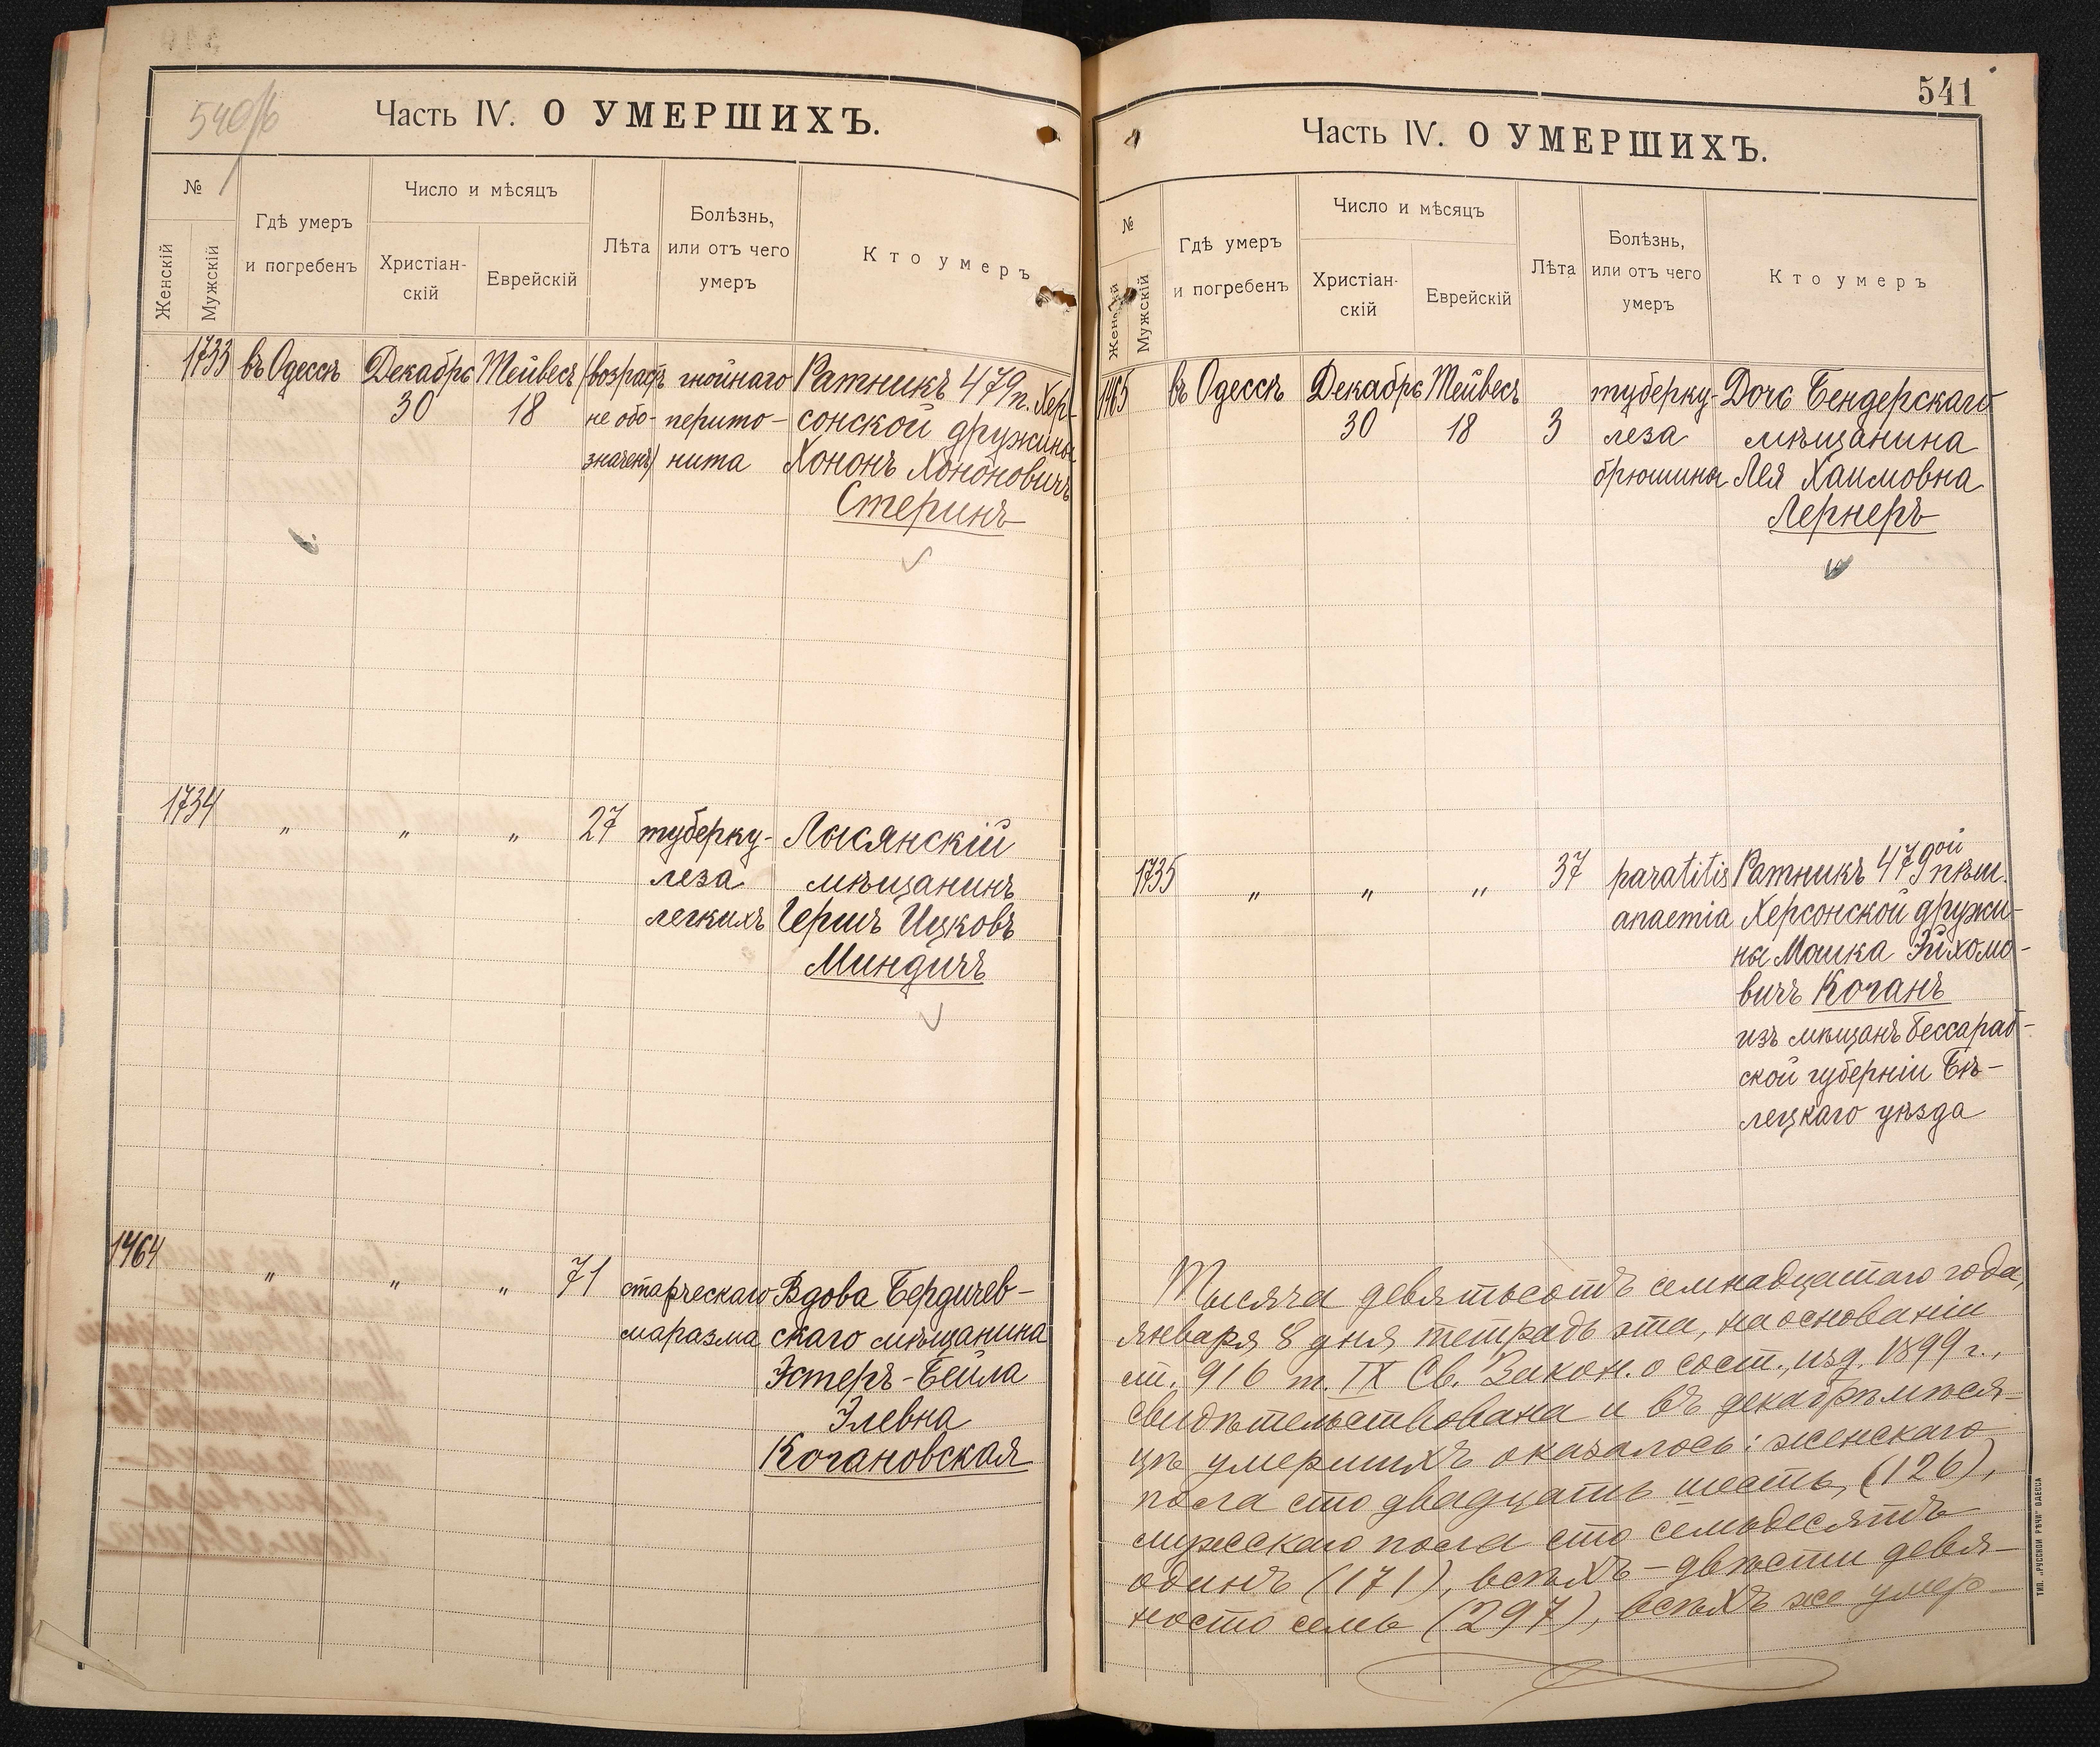 540/b
Часть IV. О УМЕРШИХЪ.
№
Женскій
Мужскій
Гдѣ умеръ
и погребенъ
Число и мѣсяцъ
Христіан-
скій
Еврейскій
Лѣта
Болѣзнь,
или отъ чего
умеръ
Кто умеръ
1733 въ Одессѣ Декабрь Тейвесъ (возрастъ гнойнаго Ратникъ 479 п. Хер-
30 18 не обо- перито- сонской дружины
значенъ) нита Хононъ Хононовичъ
Стеринъ
1734 " " " 27 туберку- Лысянскій
леза мѣщанинъ
легкихъ Гершъ Ицковъ
Миндичъ
1464 " " " 71 старческаго Вдова Бердичев-
маразма скаго мѣщанина
Эстеръ-Бейла
Элевна
Когановская
541
Часть IV. О УМЕРШИХЪ.
№
Женскій
Мужскій
Гдѣ умеръ
и погребенъ
Число и мѣсяцъ
Христіан-
скій
Еврейскій
Лѣта
Болѣзнь,
или отъ чего
умеръ
Кто умеръ
1465 въ Одессѣ Декабрь Тейвесъ туберку- Дочь Бендерскаго
30 18 3 леза мѣщанина
брюшины Лея Хаимовна
Лернеръ
1735 " " " 37 paratitis Ратникъ 479ой пѣш.
anaemia Херсонской дружи-
ны Мошка
вичъ Коганъ
изъ мѣщанъ Бессараб-
ской губерніи Бѣ-
лецкаго уѣзда
Тысяча девятьсотъ семнадцатаго года,
января 8 дня тетрадь эта, на основаніи
ст. 916 т. IX Св. Закон. о сост., изд. 1899 г.,
свидѣтельствована и въ декабрѣ мѣся-
цѣ умершихъ оказалось: женскаго
пола сто двадцать шесть, (126),
мужскаго пола сто семьдесятъ
одинъ (171), всѣхъ - двѣсти девя-
носто семь (297), всѣхъ же умер-
ТИП. „РУССКОЙ РѢЧИ" ОДЕССА